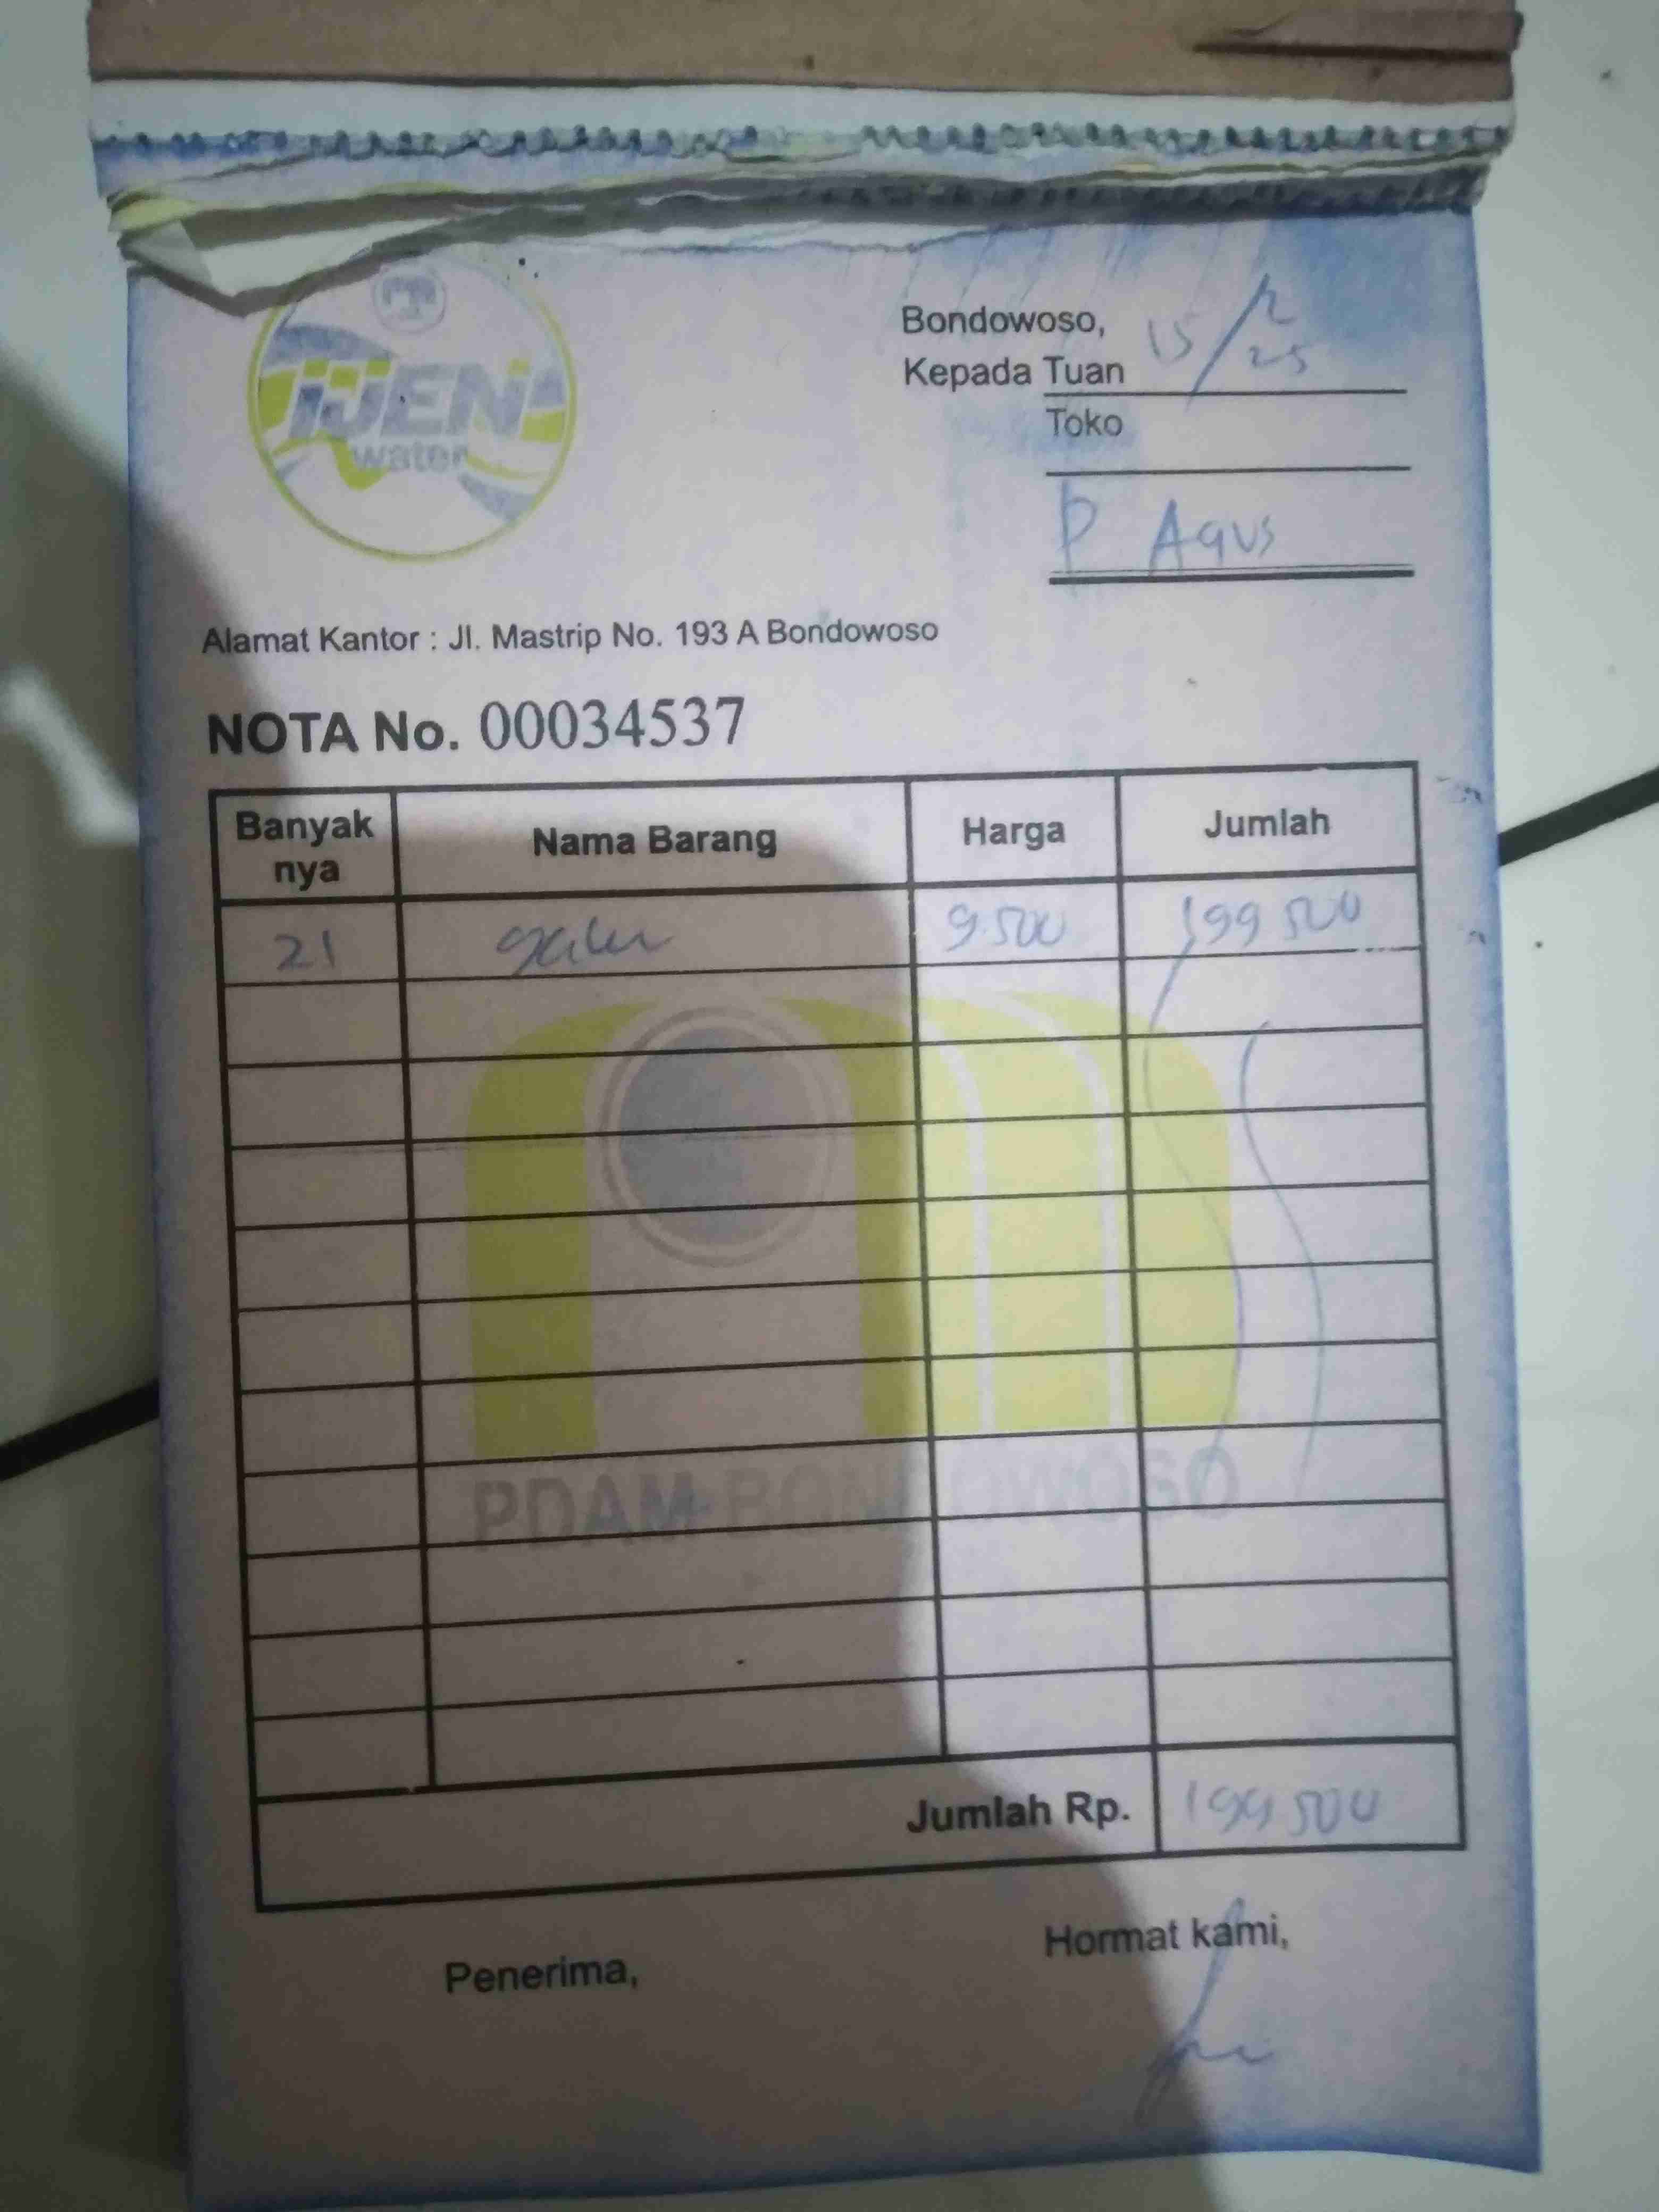 IJEN
water
Bondowoso, 15/2 25
Kepada Tuan
Toko
P Agus
Alamat Kantor : Jl. Mastrip No. 193 A Bondowoso
NOTA No. 00034537
Banyak nya Nama Barang Harga Jumlah
21 galon 9.500 199 500
PDAM BONDOWOSO
Jumlah Rp. 199 500
Penerima,
Hormat kami,